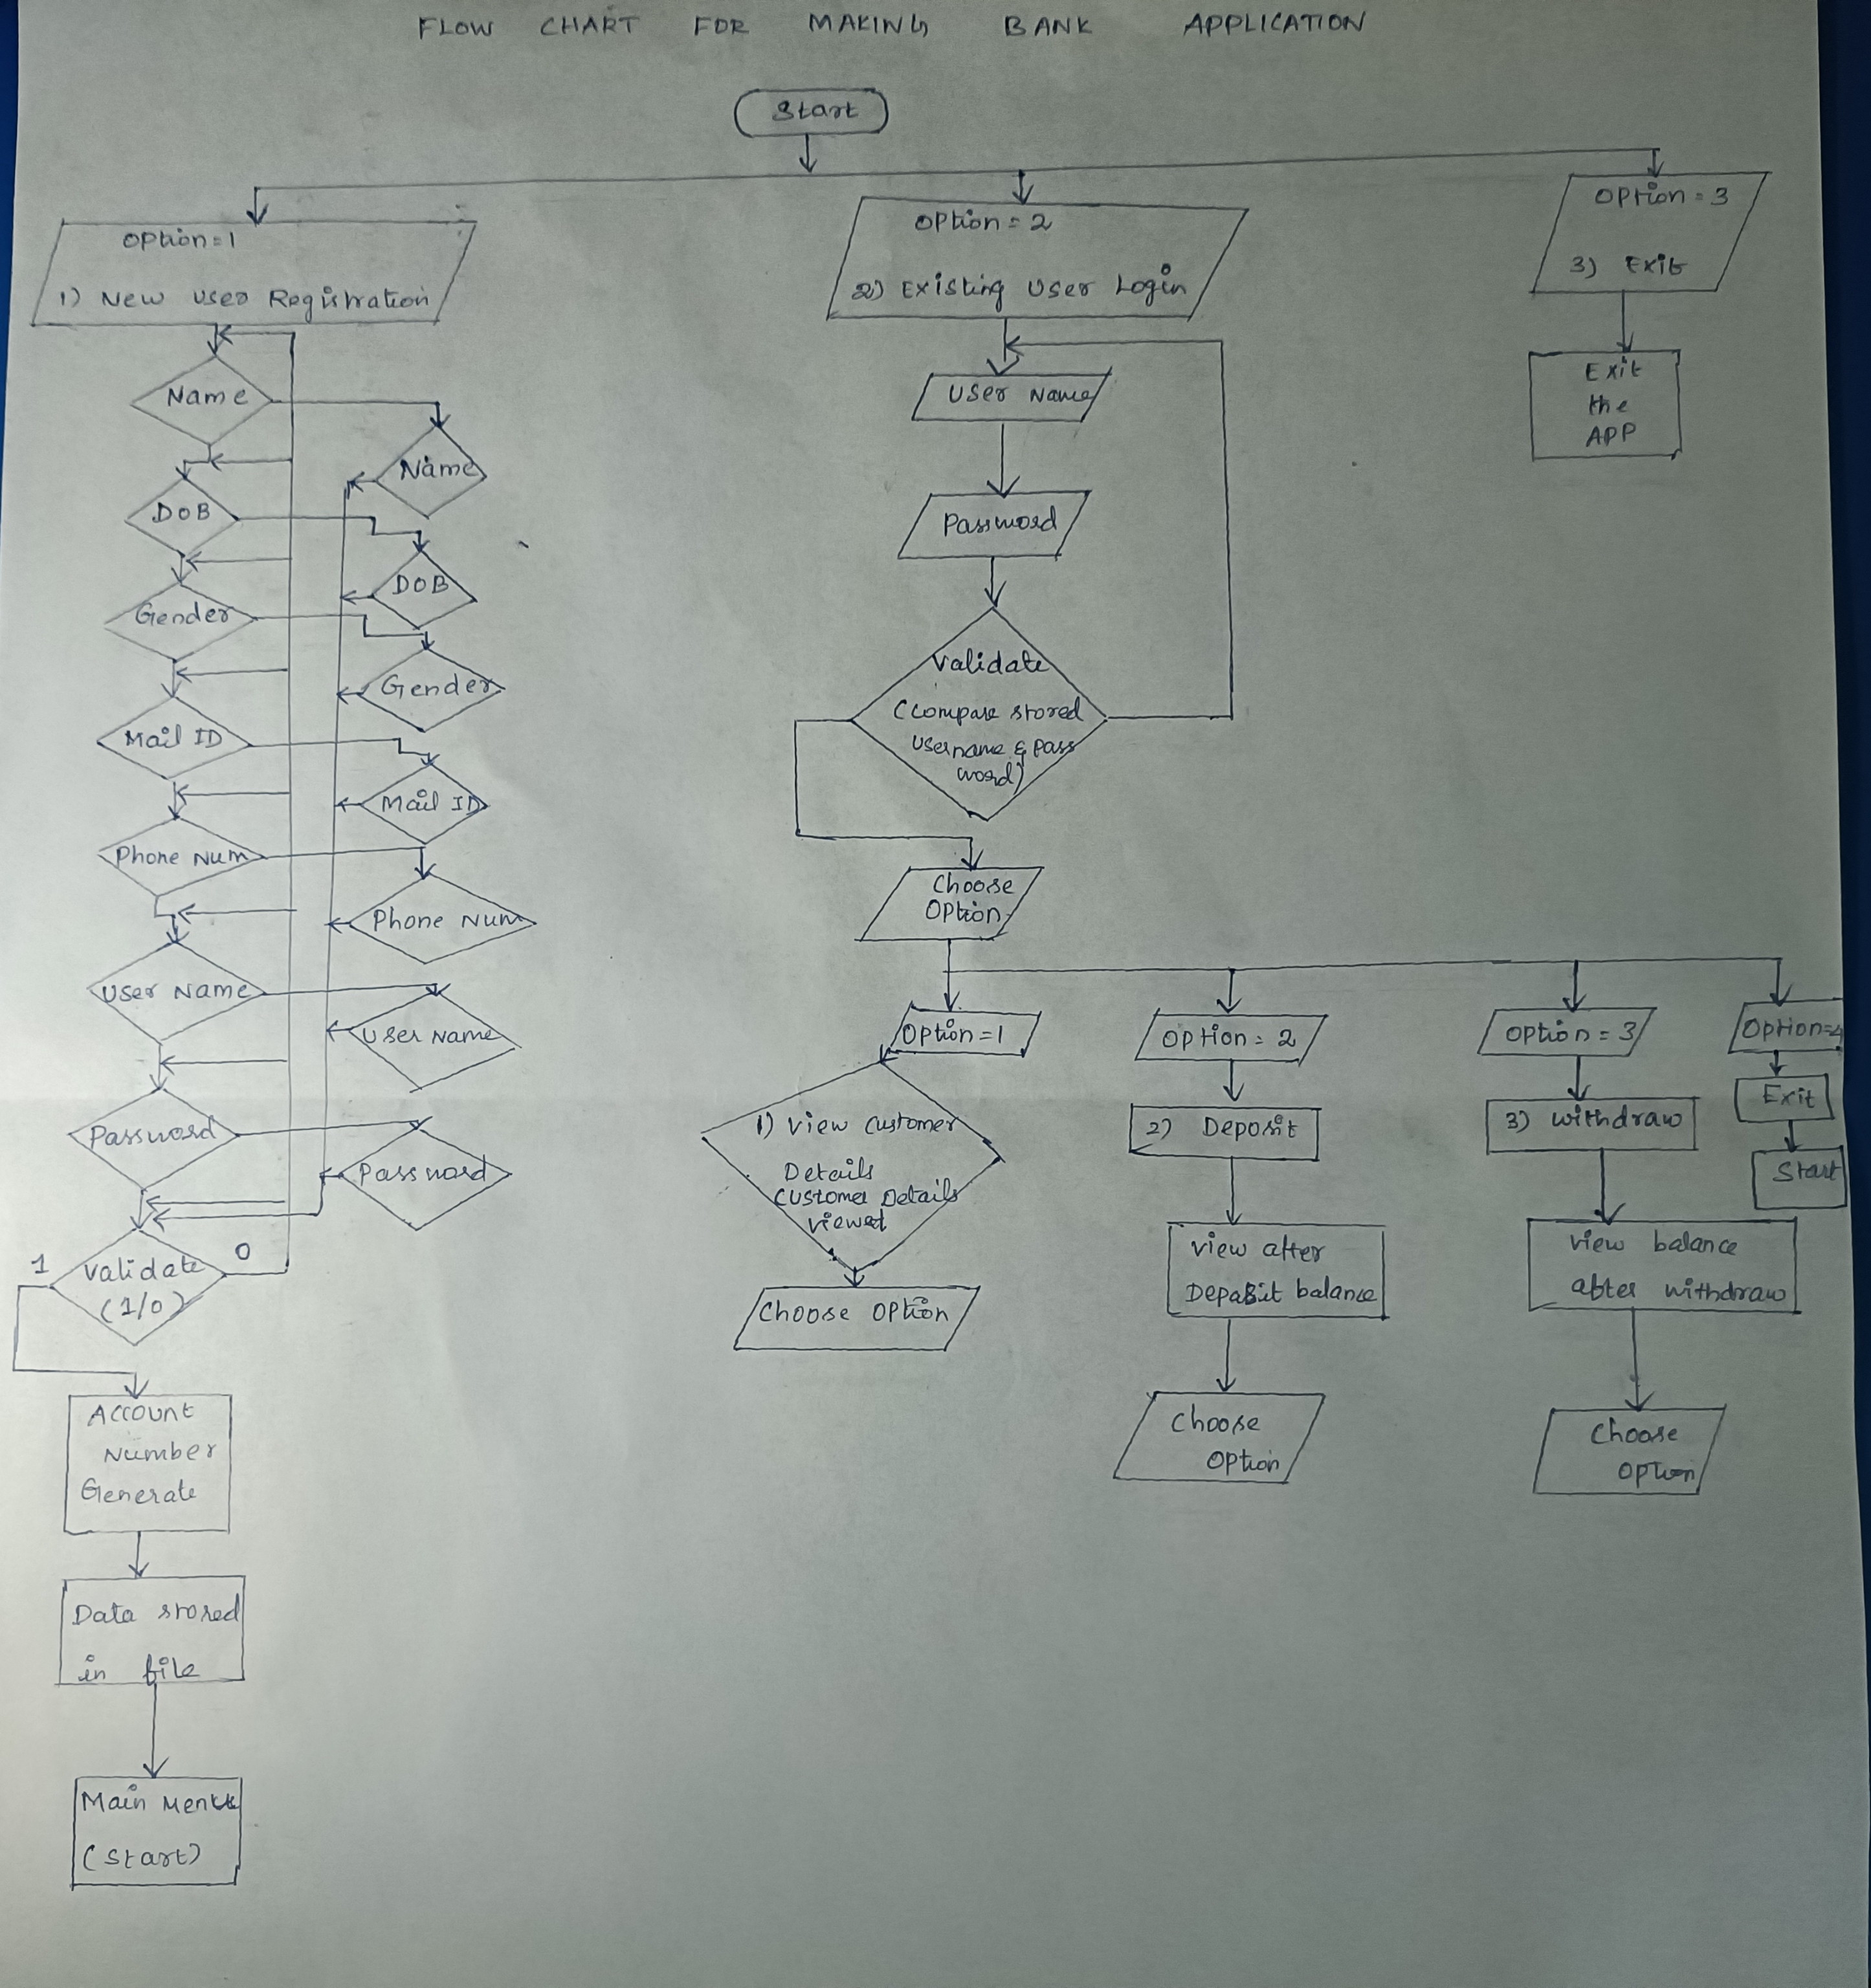 FLOW CHART FOR MAKING BANK APPLICATION
Start
Option=1
1) New User Registration
Name
DOB
Gender
Mail ID
Phone Num
User Name
Password
Validate
(1/0)
1
0
Name
DOB
Gender
Mail ID
Phone Num
User Name
Password
Account
Number
Generate
Data stored
in file
Main Menu
(Start)
Option = 2
2) Existing User Login
User Name
Password
Validate
(Compare stored
Username & pass
word)
Choose
Option
Option=1
1) View Customer
Details
Customer Details
viewed
Choose Option
Option = 2
2) Deposit
View after
Deposit balance
Choose
Option
Option = 3
3) Withdraw
View balance
after withdraw
Choose
Option
Option=4
Exit
Start
Option = 3
3) Exit
Exit
the
APP